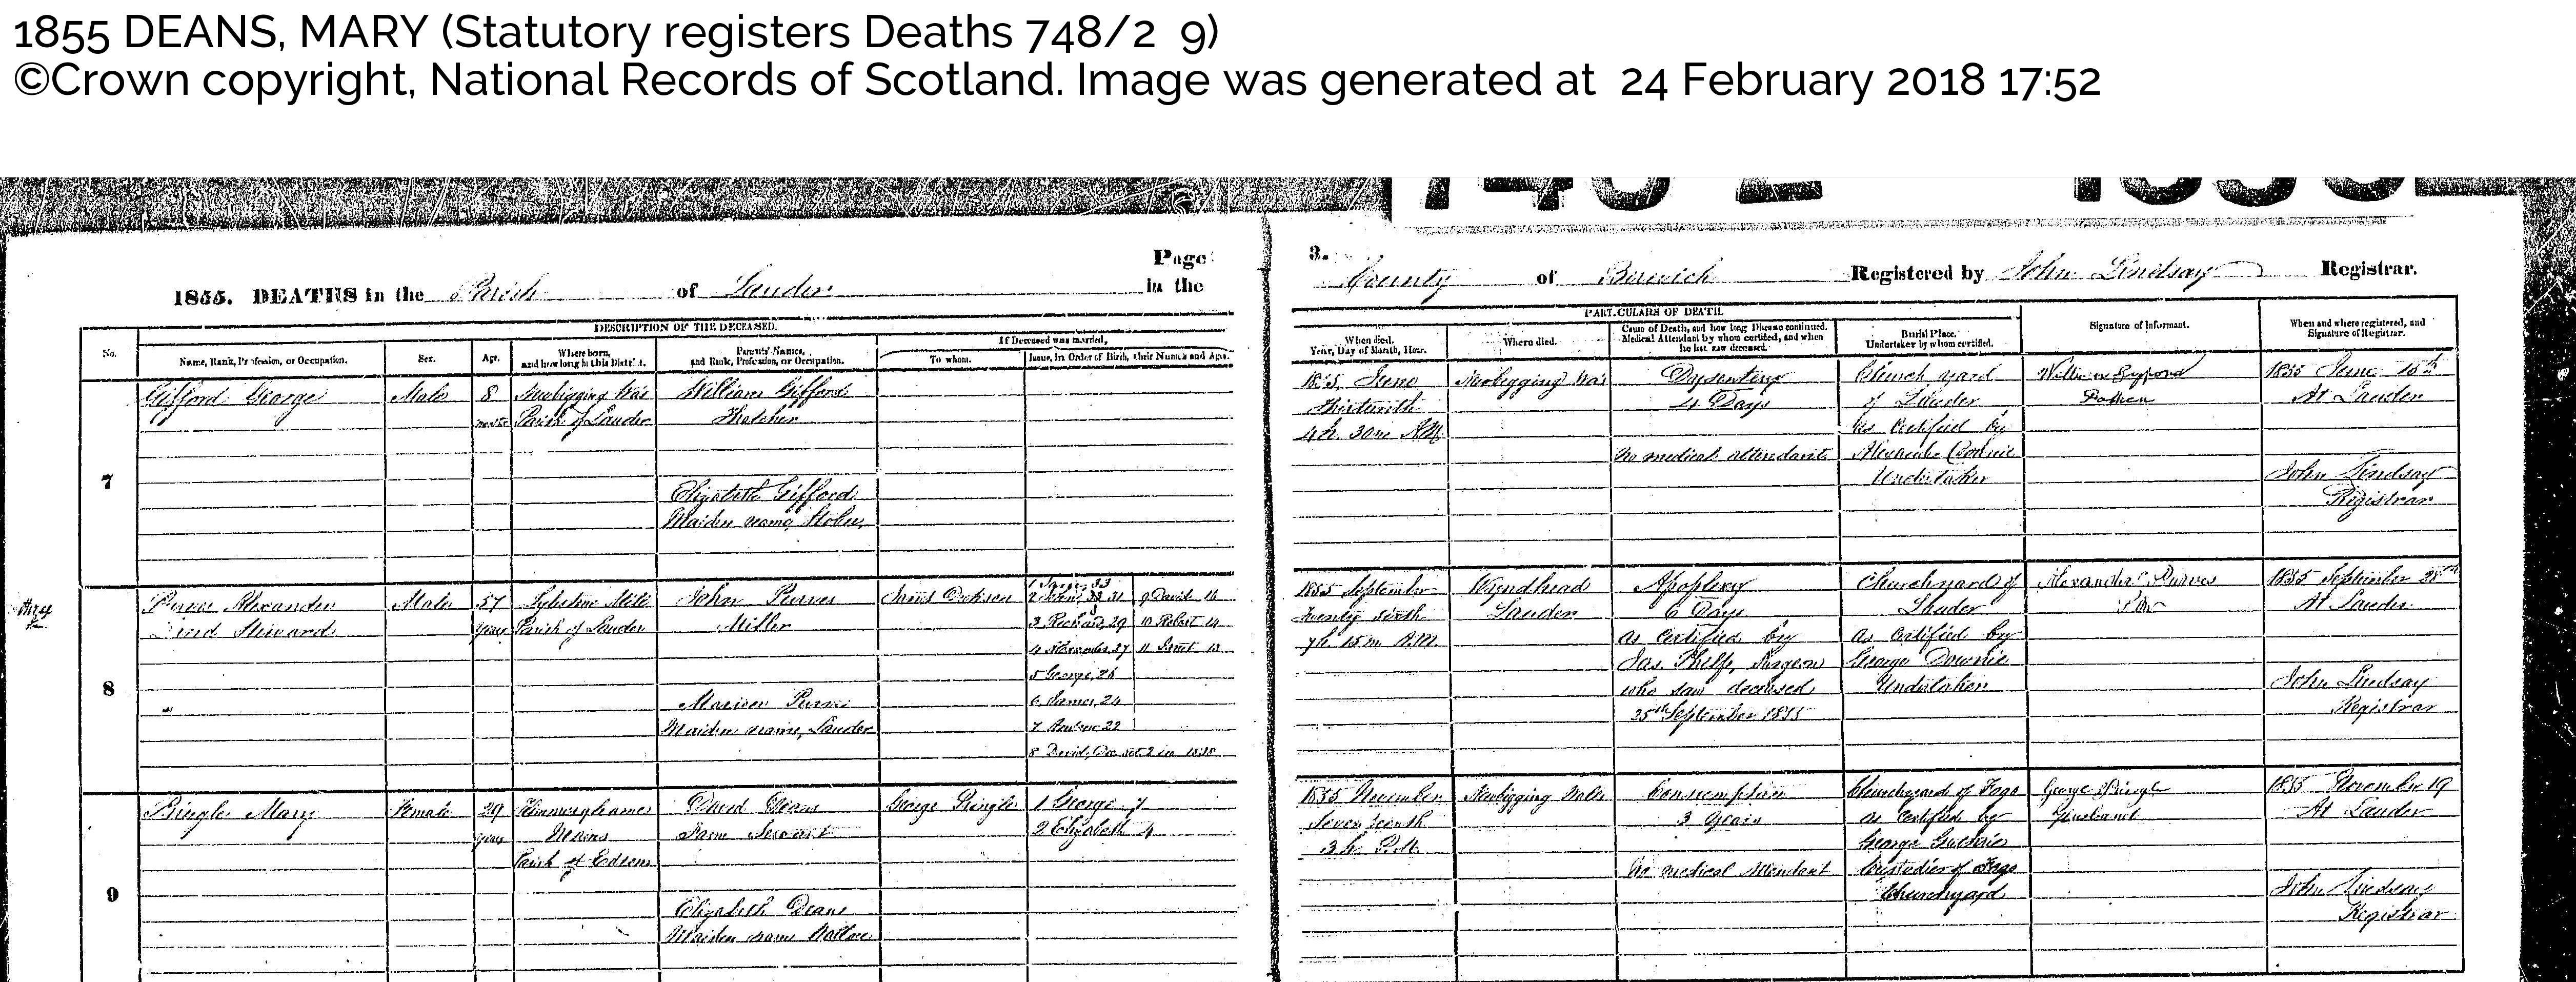 1855 DEANS, MARY (Statutory registers Deaths 748/2 9)
©Crown copyright, National Records of Scotland. Image was generated at 24 February 2018 17:52
Page 3.
1855. DEATHS in the Parish of Lauder in the County of Berwick Registered by John Lindsay Registrar.
DESCRIPTION OF THE DECEASED.
PARTICULARS OF DEATH.
No.
Name, Rank, Profession, or Occupation.
Sex.
Age.
Where born,
and how long in this District.
Parents' Names,
and Rank, Profession, or Occupation.
If Deceased was married,
To whom.
Issue, in Order of Birth, their Names and Ages.
When died.
Year, Day of Month, Hour.
Where died.
Cause of Death, and how long Disease continued.
Medical Attendant by whom certified, and when
he last saw deceased.
Burial Place.
Undertaker by whom certified.
Signature of Informant.
When and where registered, and
Signature of Registrar.
7
Gifford George
Male
8
Parish of Lauder
William Gifford
Thatcher
Elizabeth Gifford
Maiden name
1855 June
Thirteenth
4 h. 30 m A.M.
Newbigging
Dysentery
4 Days
No medical attendant
Church yard
of Lauder
as Certified by
Alexander
Undertaker
William Gifford
Father
1855 June 15th
At Lauder
John Lindsay
Registrar
8
Purves Alexander
Steward
Male
57
years
Parish of Lauder
John Purves
Miller
Purves
Maiden name, Lauder
3 Richard, 29
4 Alexander 27
5 George, 26
6 James, 24
7 Andrew 22
8 David,
9 David 16
10 Robert 14
11 13
1855 September
twenty sixth
7 h. 15 m. A.M.
Wyndhead
Lauder
Apoplexy
6 Days
as Certified by
Jas. Surgeon
who saw deceased
25th September 1855
Churchyard of
Lauder
as Certified by
George Downie
Undertaker
Alexander Purves
Son
1855 September 28th
At Lauder
John Lindsay
Registrar
9
Pringle Mary
Female
29
years
Mains
Parish of Edrom
David Deans
Farm Servant
Elizabeth Deans
Maiden name Wallace
George Pringle
1 George 7
2 Elizabeth 4
1855 November
Seventeenth
3 h. P.M.
Newbigging Walls
Consumption
3 Years
No medical Attendant
Churchyard of Fogo
as Certified by
George Guthrie
Custodier of Fogo
Churchyard
George Pringle
Husband
1855 November 19
At Lauder
John Lindsay
Registrar